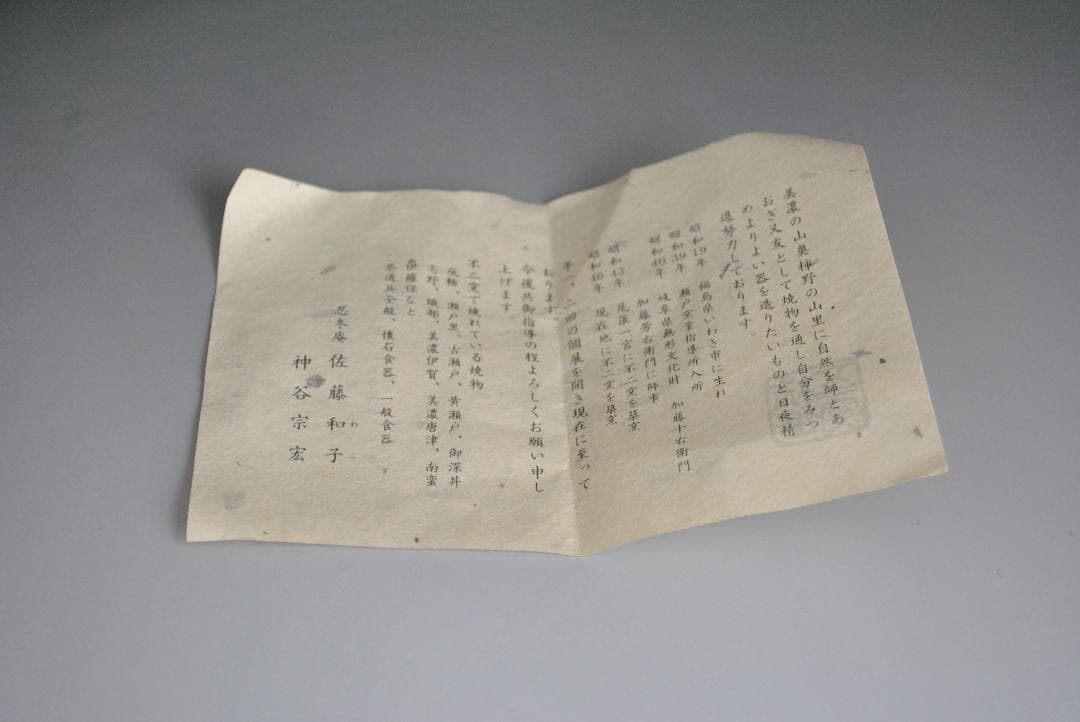 美濃の山奥柿野の山里に自然を師とあ
おぎ又友として焼物を通し自分をみつ
めよりよい器を造りたいものと日夜精
進努力しております。
昭和19年 福島県いわき市に生れ
昭和39年 瀬戸窯業指導所入所
昭和40年 岐阜県無形文化財 加藤十右衛門
加藤芳右衛門に師事
昭和43年 尾張一宮に不二窯を築窯
昭和46年 現在地に不二窯を築窯
年一、二回の個展を開き現在に至って
おります
今後共御指導の程よろしくお願い申し
上げます。
不二窯で焼れている焼物
灰釉、瀬戸黒、古瀬戸、黄瀬戸、御深井
志野、織部、美濃伊賀、美濃唐津、南蛮
伊羅保など
茶道具全般、懐石食器、一般食器
忍冬庵 佐藤和子
わこ
神谷宗宏